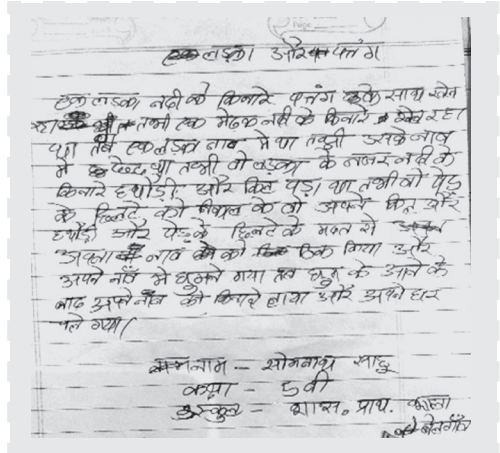 एक लड़का और पतंग
एक लडका नदी के किनारे पतंग के साथ खेल
रहा था तभी एक मेढक नदी के किनारे खेल रहा
था तब एक लड़का नाव मे था तभी उसके नाव
मे छेद था तभी वो लड़का के नजर नदी के
किनारे हथोड़ी और किल पड़ा था तभी वो पेड़
के छिलटे को निकाल के वो अपने किल और
हथोड़ी और पेड़ के छिलटे के मदत से
अपना नाव को ठिक किया और
अपने नाँव मे घुमने गया तब घुम के आने के
बाद अपने नाँव को किनारे लाया और अपने घर
चले गया।
नाम - सोमनाथ साहू
कक्षा - 5 वी
स्कुल - शास. प्राथ. शाला
बेलगाँव